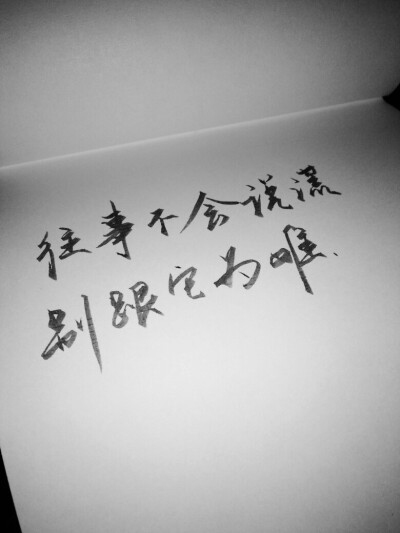 往事不会说谎
别跟它为难.